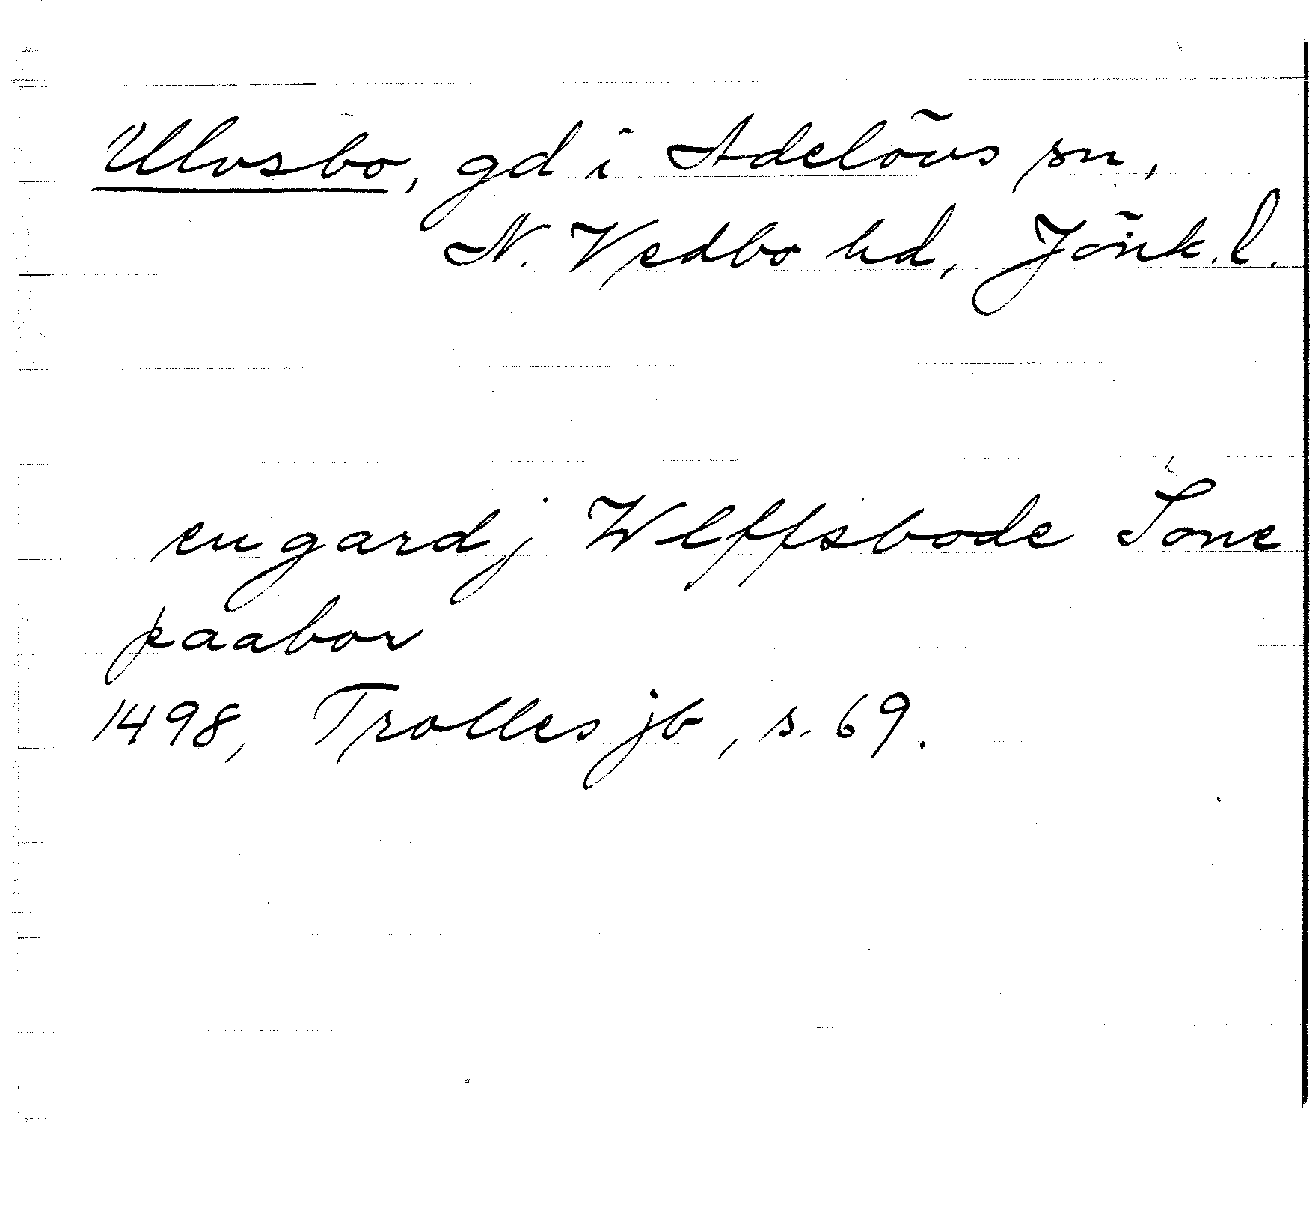 Ulvsbo, gd i Adelövs sn,
N. Vedbo hd, Jönk. l.
en gard j Wlffsbode Sone
paabor
1498, Trolles jb, s. 69.